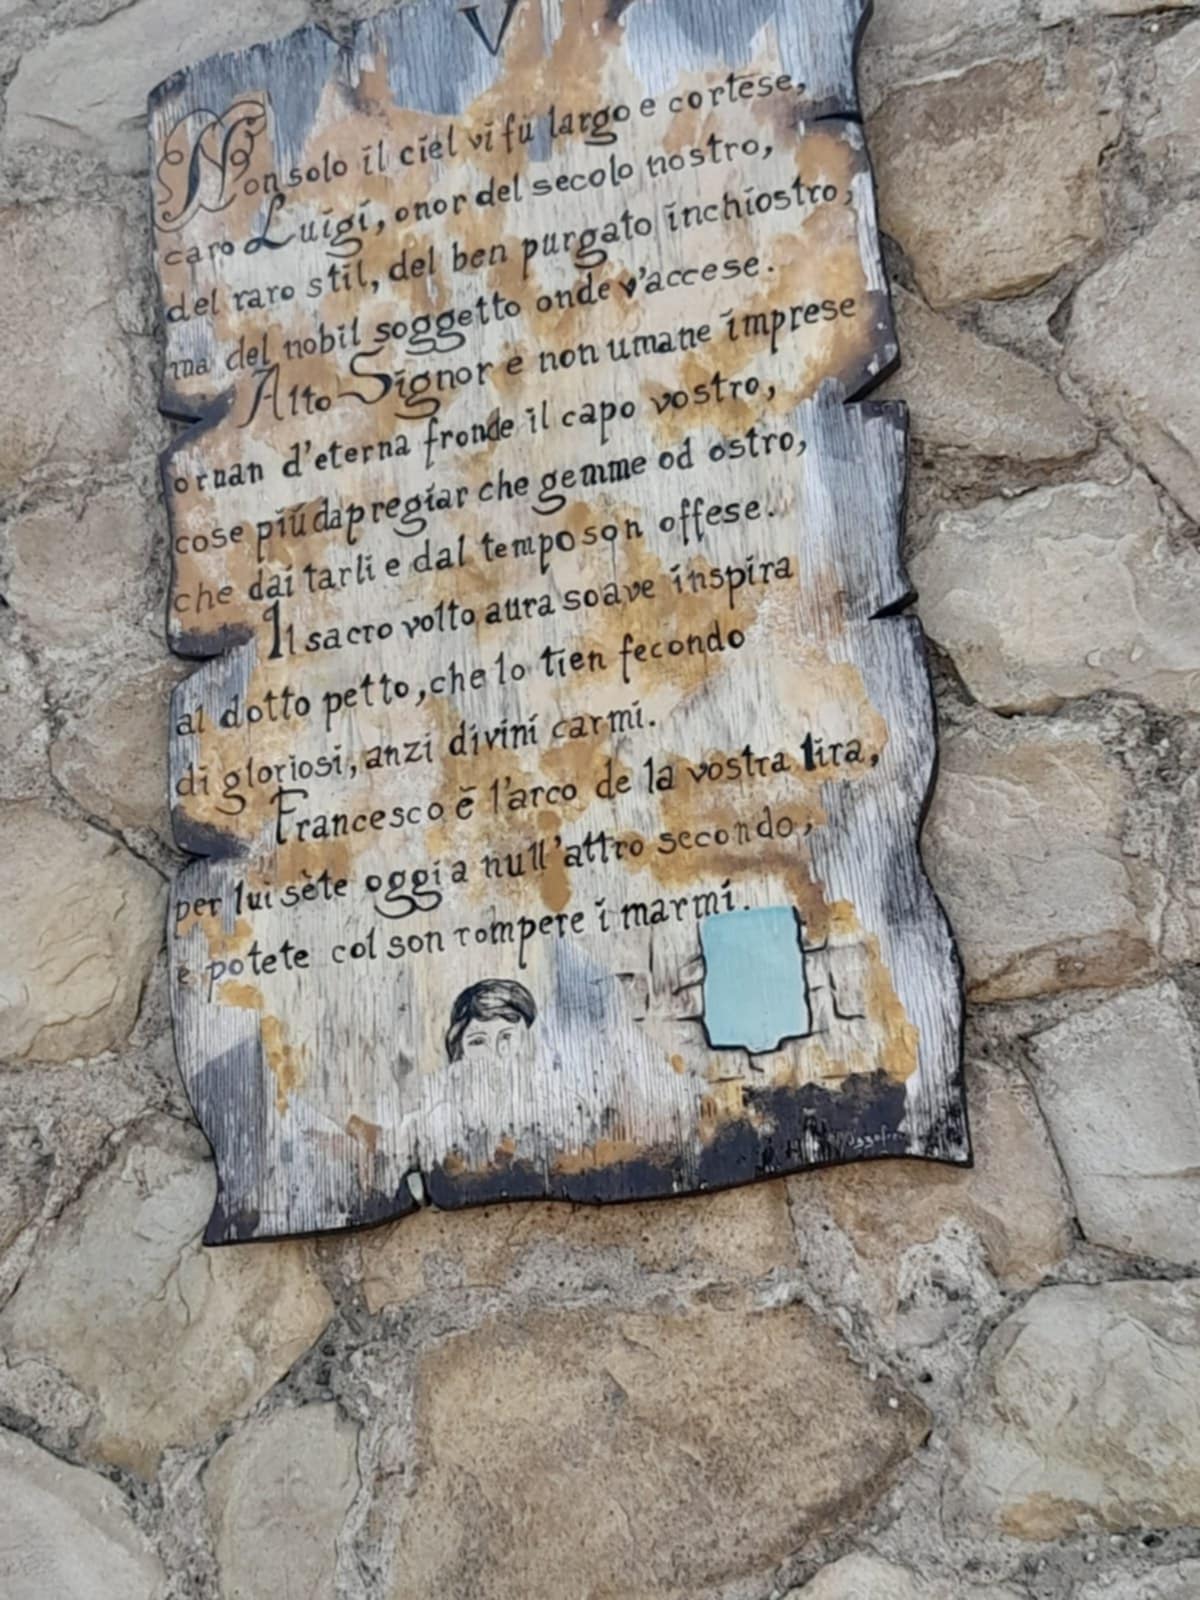 V
Non solo il ciel vi fu largo e cortese,
caro Luigi, onor del secolo nostro,
del raro stil, del ben purgato inchiostro,
ma del nobil soggetto onde v'accese.
Alto Signor e non umane imprese
ornan d'eterna fronde il capo vostro,
cose piú da pregiar che gemme od ostro,
che dai tarli e dal tempo son offese.
Il sacro volto aura soave inspira
al dotto petto, che lo tien fecondo
di gloriosi, anzi divini carmi.
Francesco è l'arco de la vostra lira,
per lui sète oggi a null'altro secondo,
e potete col son rompere i marmi.